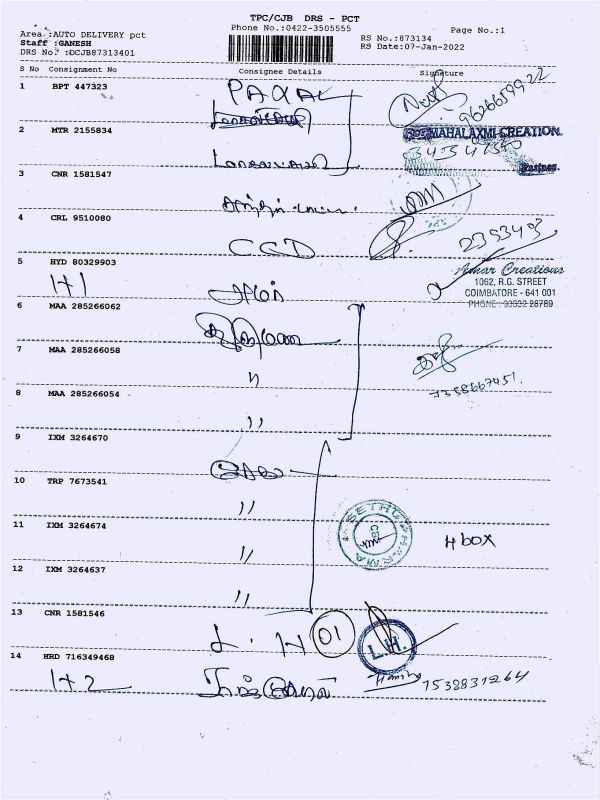 TPC/CJB DRS - PCT
Phone No.:0422-3505555
Page No.:1
Area :AUTO DELIVERY pct
RS No.:873134
Staff :GANESH
RS Date:07-Jan-2022
DRS No. :DCJB87313401
S No Consignment No Consignee Details Signature
1 BPT 447323 PAYAL
9626659922
2 MTR 2155834
MAHALAXMI CREATION
Partner
3 CNR 1581547
4 CRL 9510080 CCD
2353403
5 HYD 80329903
1+1 அமர்
Amar Creations
1062, R.G. STREET
COIMBATORE - 641 001
PHONE :
6 MAA 285266062
7 MAA 285266058 "
7358667451.
8 MAA 285266054 "
9 IXM 3264670
10 TRP 7673541 "
11 IXM 3264674 "
4 box
12 IXM 3264637 "
13 CNR 1581546 L. H 01
L.H.
14 HRD 716349468
1+2
7538831264